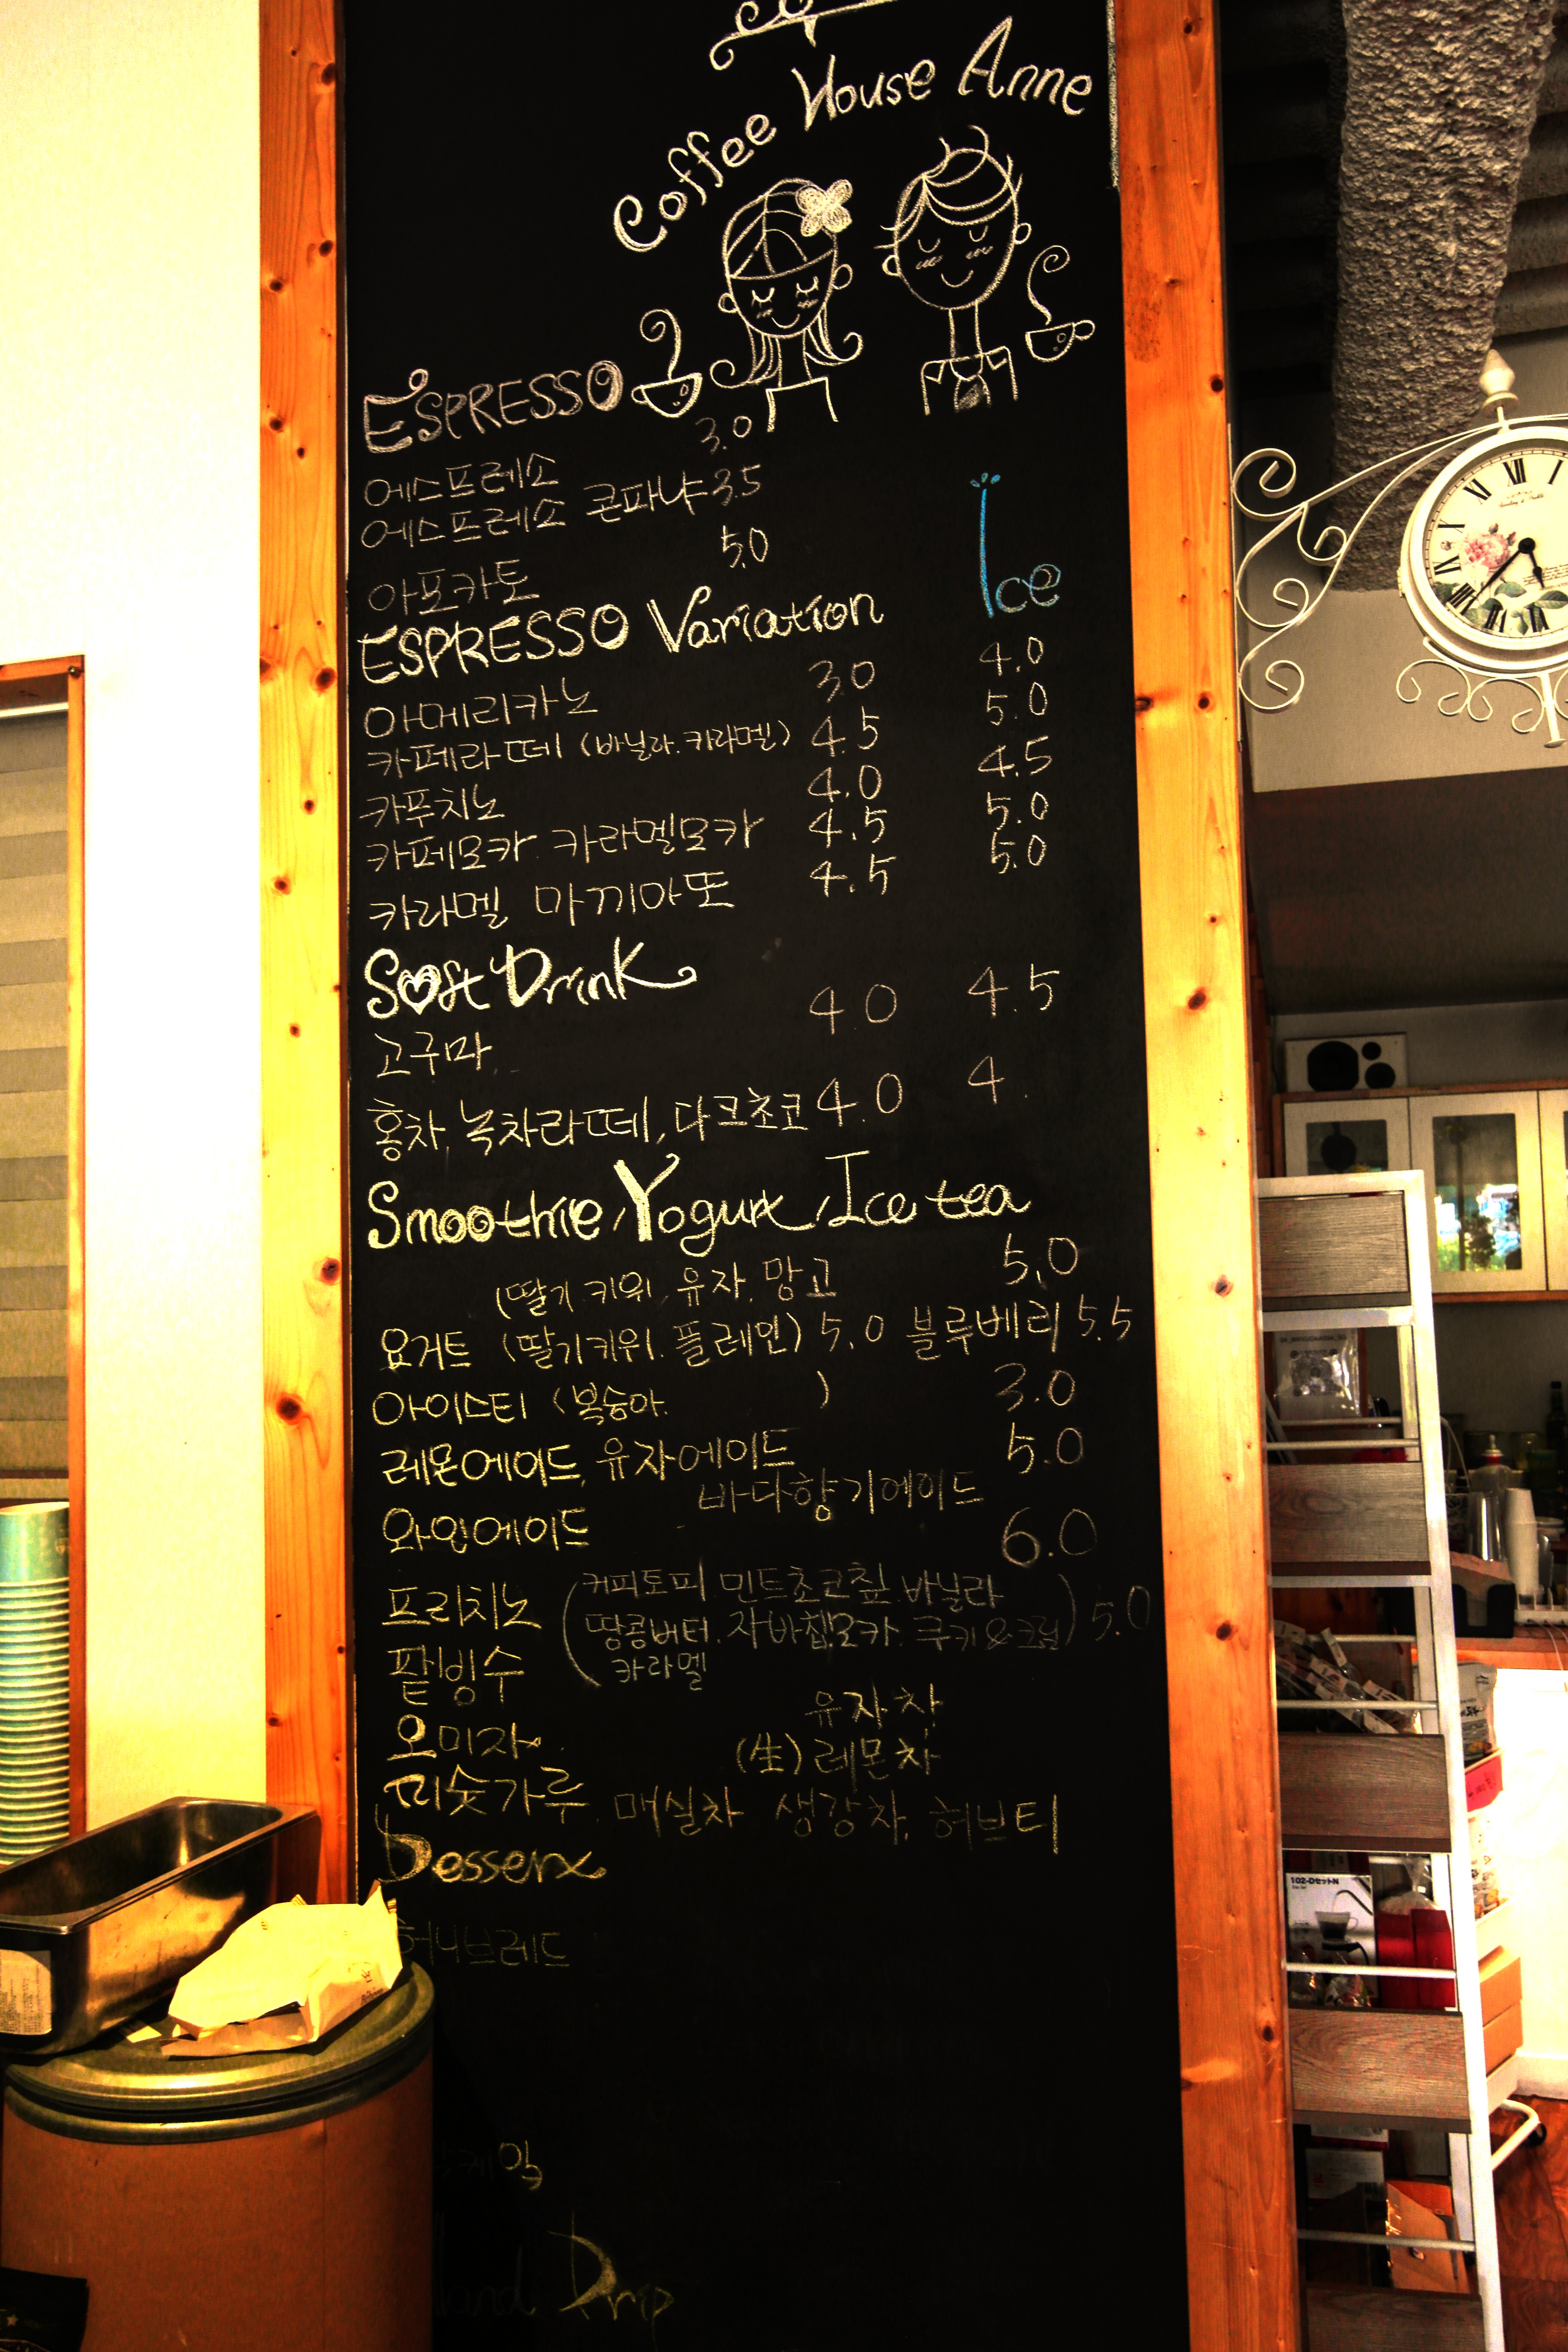 Coffee House Anne
ESPRESSO
에스프레소 3.0
에스프레소 콘파냐 3.5
아포카토 5.0
ESPRESSO Variation Ice
아메리카노 3.0 4.0
카페라떼 (바닐라.카라멜) 4.5 5.0
카푸치노 4.0 4.5
카페모카. 카라멜모카 4.5 5.0
카라멜 마끼아또 4.5 5.0
Soft Drink
고구마. 4.0 4.5
홍차, 녹차라떼, 다크초코 4.0 4.
Smoothie, Yogurt, Ice tea
(딸기.키위.유자.망고 5.0
요거트 (딸기키위.플레인) 5.0 블루베리 5.5
아이스티 (복숭아. ) 3.0
레몬에이드, 유자에이드 5.0
바다향기에이드
와인에이드 6.0
프리치노 (커피토피.민트초코칲.바닐라
땅콩버터.자바칩모카.쿠키&크림) 5.0
카라멜
팥빙수
유자차
오미자.
(生) 레몬차
미숫가루. 매실차 생강차. 허브티
Dessert
허니브레드
Hand Drip
102-DセットN